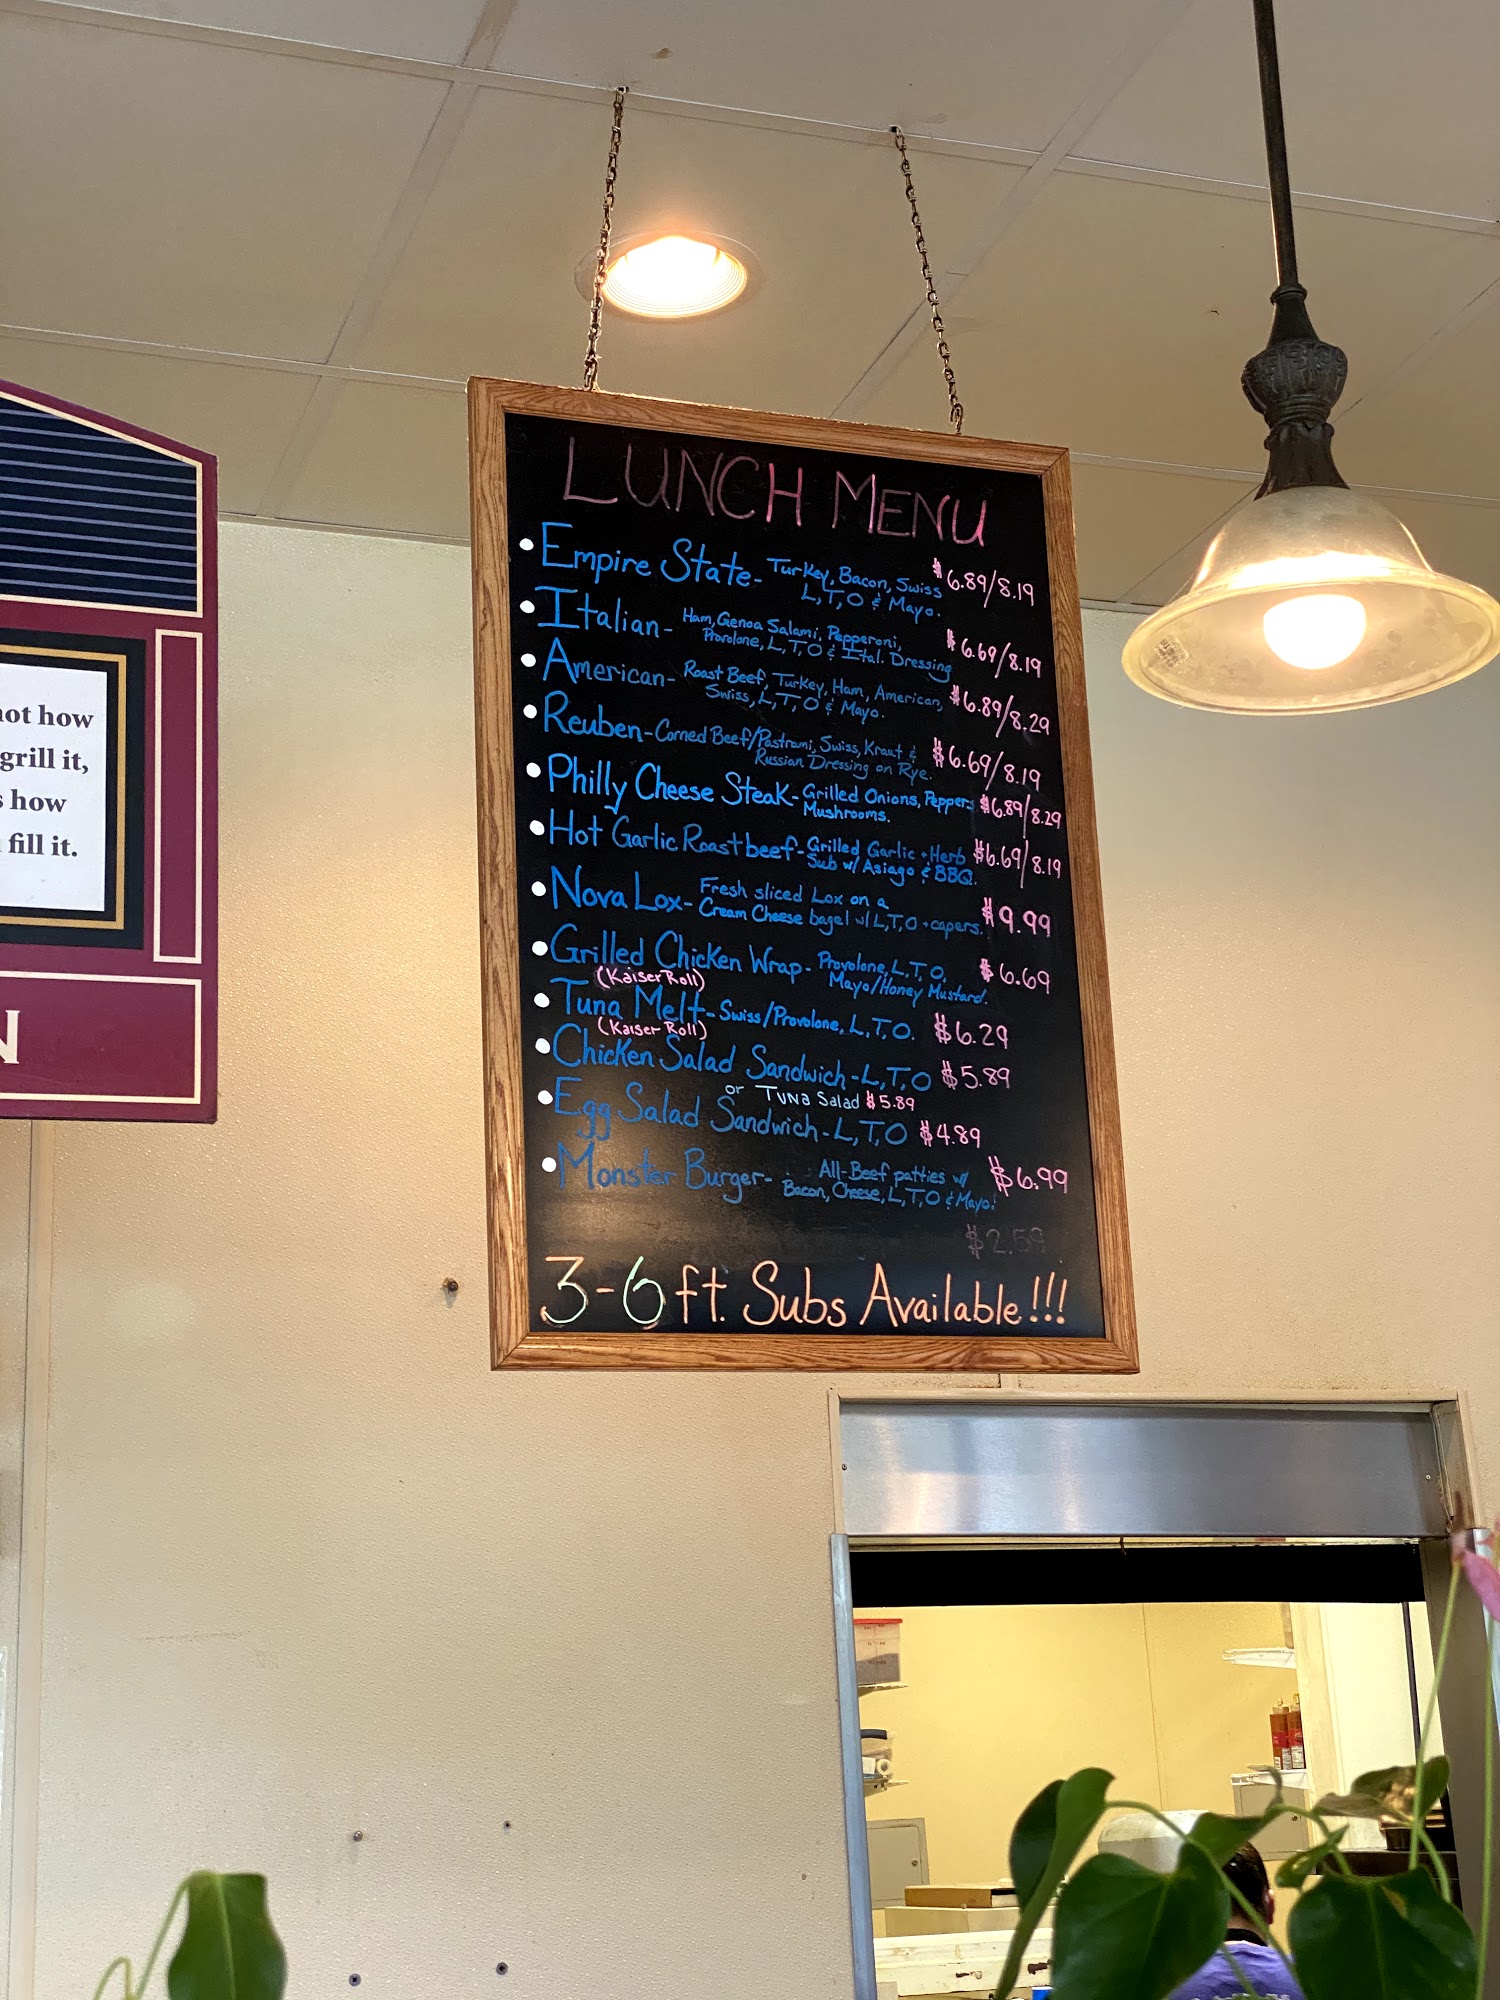 LUNCH MENU
Empire State- Turkey, Bacon, Swiss $6.89/8.19
L, T, O & Mayo.
Italian- Ham, Genoa Salami, Pepperoni, $6.69/8.19
Provolone, L, T, O & Ital. Dressing
American- Roast Beef, Turkey, Ham, American, $6.89/8.29
Swiss, L, T, O & Mayo.
Reuben- Corned Beef/Pastrami, Swiss, Kraut & $6.69/8.19
Russian Dressing on Rye.
Philly Cheese Steak- Grilled Onions, Peppers $6.89/8.29
Mushrooms.
Hot Garlic Roastbeef- Grilled Garlic + Herb $6.69/8.19
Sub w/ Asiago & BBQ.
Nova Lox- Fresh sliced Lox on a $9.99
Cream Cheese bagel w/ L, T, O + capers.
Grilled Chicken Wrap- Provolone, L, T, O, $6.69
Mayo/Honey Mustard.
(Kaiser Roll)
Tuna Melt- Swiss/Provolone, L, T, O. $6.29
(Kaiser Roll)
Chicken Salad Sandwich - L, T, O $5.89
or Tuna Salad $5.89
Egg Salad Sandwich - L, T, O $4.89
Monster Burger- All-Beef patties w/ $6.99
Bacon, Cheese, L, T, O & Mayo!
$2.59
3-6 ft. Subs Available!!!
not how
grill it,
s how
fill it.
N